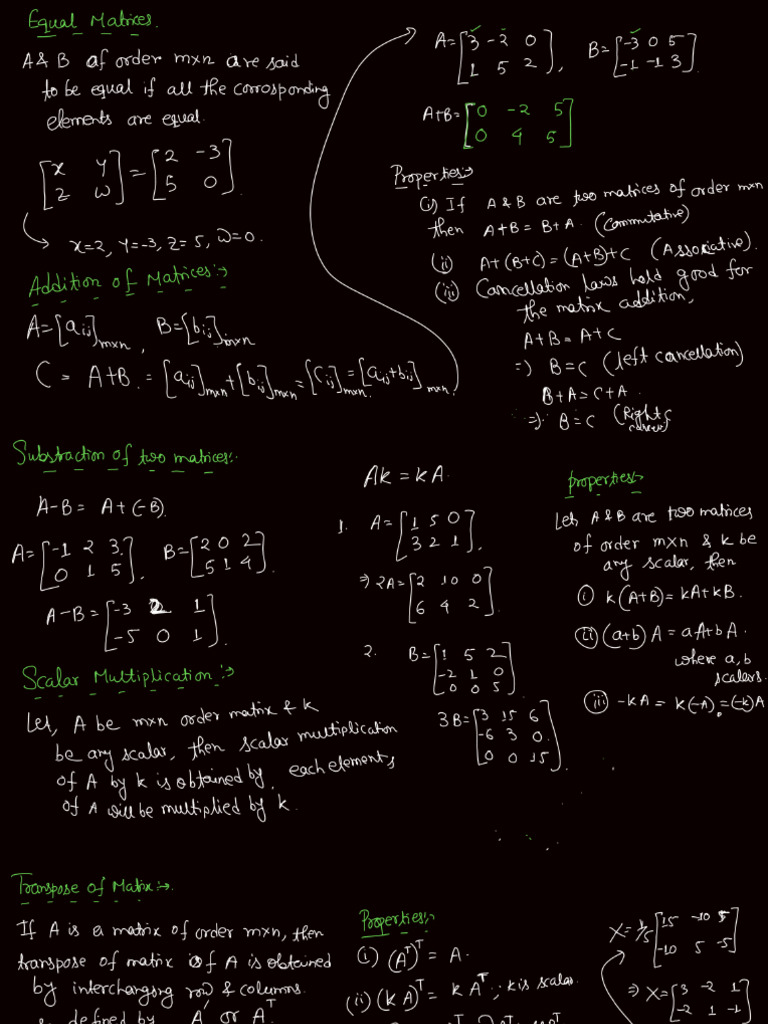 Equal Matrices.
A & B of order m×n are said
to be equal if all the corrosponding
elements are equal.
[x y
z w] = [2 -3
5 0].
x=2, y=-3, z=5, w=0.
Addition of Matrices:→
A=[aij]m×n, B=[bij]m×n
C = A+B = [aij]m×n + [bij]m×n = [cij]m×n = [aij+bij]m×n.
A=[3 -2 0
1 5 2], B=[-3 0 5
-1 -1 3].
A+B=[0 -2 5
0 4 5]
Properties:→
(i) If A & B are two matrices of order m×n
then A+B = B+A. (Commutative)
(ii) A+(B+C)=(A+B)+C (Associative).
(iii) Cancellation laws hold good for
the matrix addition,
A+B = A+C
=> B=C (left cancellation)
B+A=C+A.
=> B=C (Right
Substraction of two matrices:.
A-B = A+(-B).
A=[-1 2 3
0 1 5], B=[2 0 2
5 1 4].
A-B=[-3 2 1
-5 0 1].
Scalar Multiplication:→
Let, A be m×n order matrix & k
be any scalar, then scalar multiplication
of A by k is obtained by each elements
of A will be multiplied by k.
Ak = kA.
1. A=[1 5 0
3 2 1].
=> 2A=[2 10 0
6 4 2].
2. B=[1 5 2
-2 1 0
0 0 5]
3B=[3 15 6
-6 3 0
0 0 15].
properties:→
Let A & B are two matrices
of order m×n & k be
any scalar, then
(i) k(A+B)=kA+kB.
(ii) (a+b)A = aA+bA.
where a,b
scalars.
(iii) -kA = k(-A) = (-k)A
Transpose of Matix:→.
If A is a matrix of order m×n, then
transpose of matrix of A is obtained
by interchanging row & columns.
& defined by A' or Aᵀ.
Properties:→
(i) (Aᵀ)ᵀ = A.
(ii) (kA)ᵀ = kAᵀ; k is scalar
X=1/5[15 -10 5
-10 5 -5]
=> X=[3 -2 1
-2 1 -1]